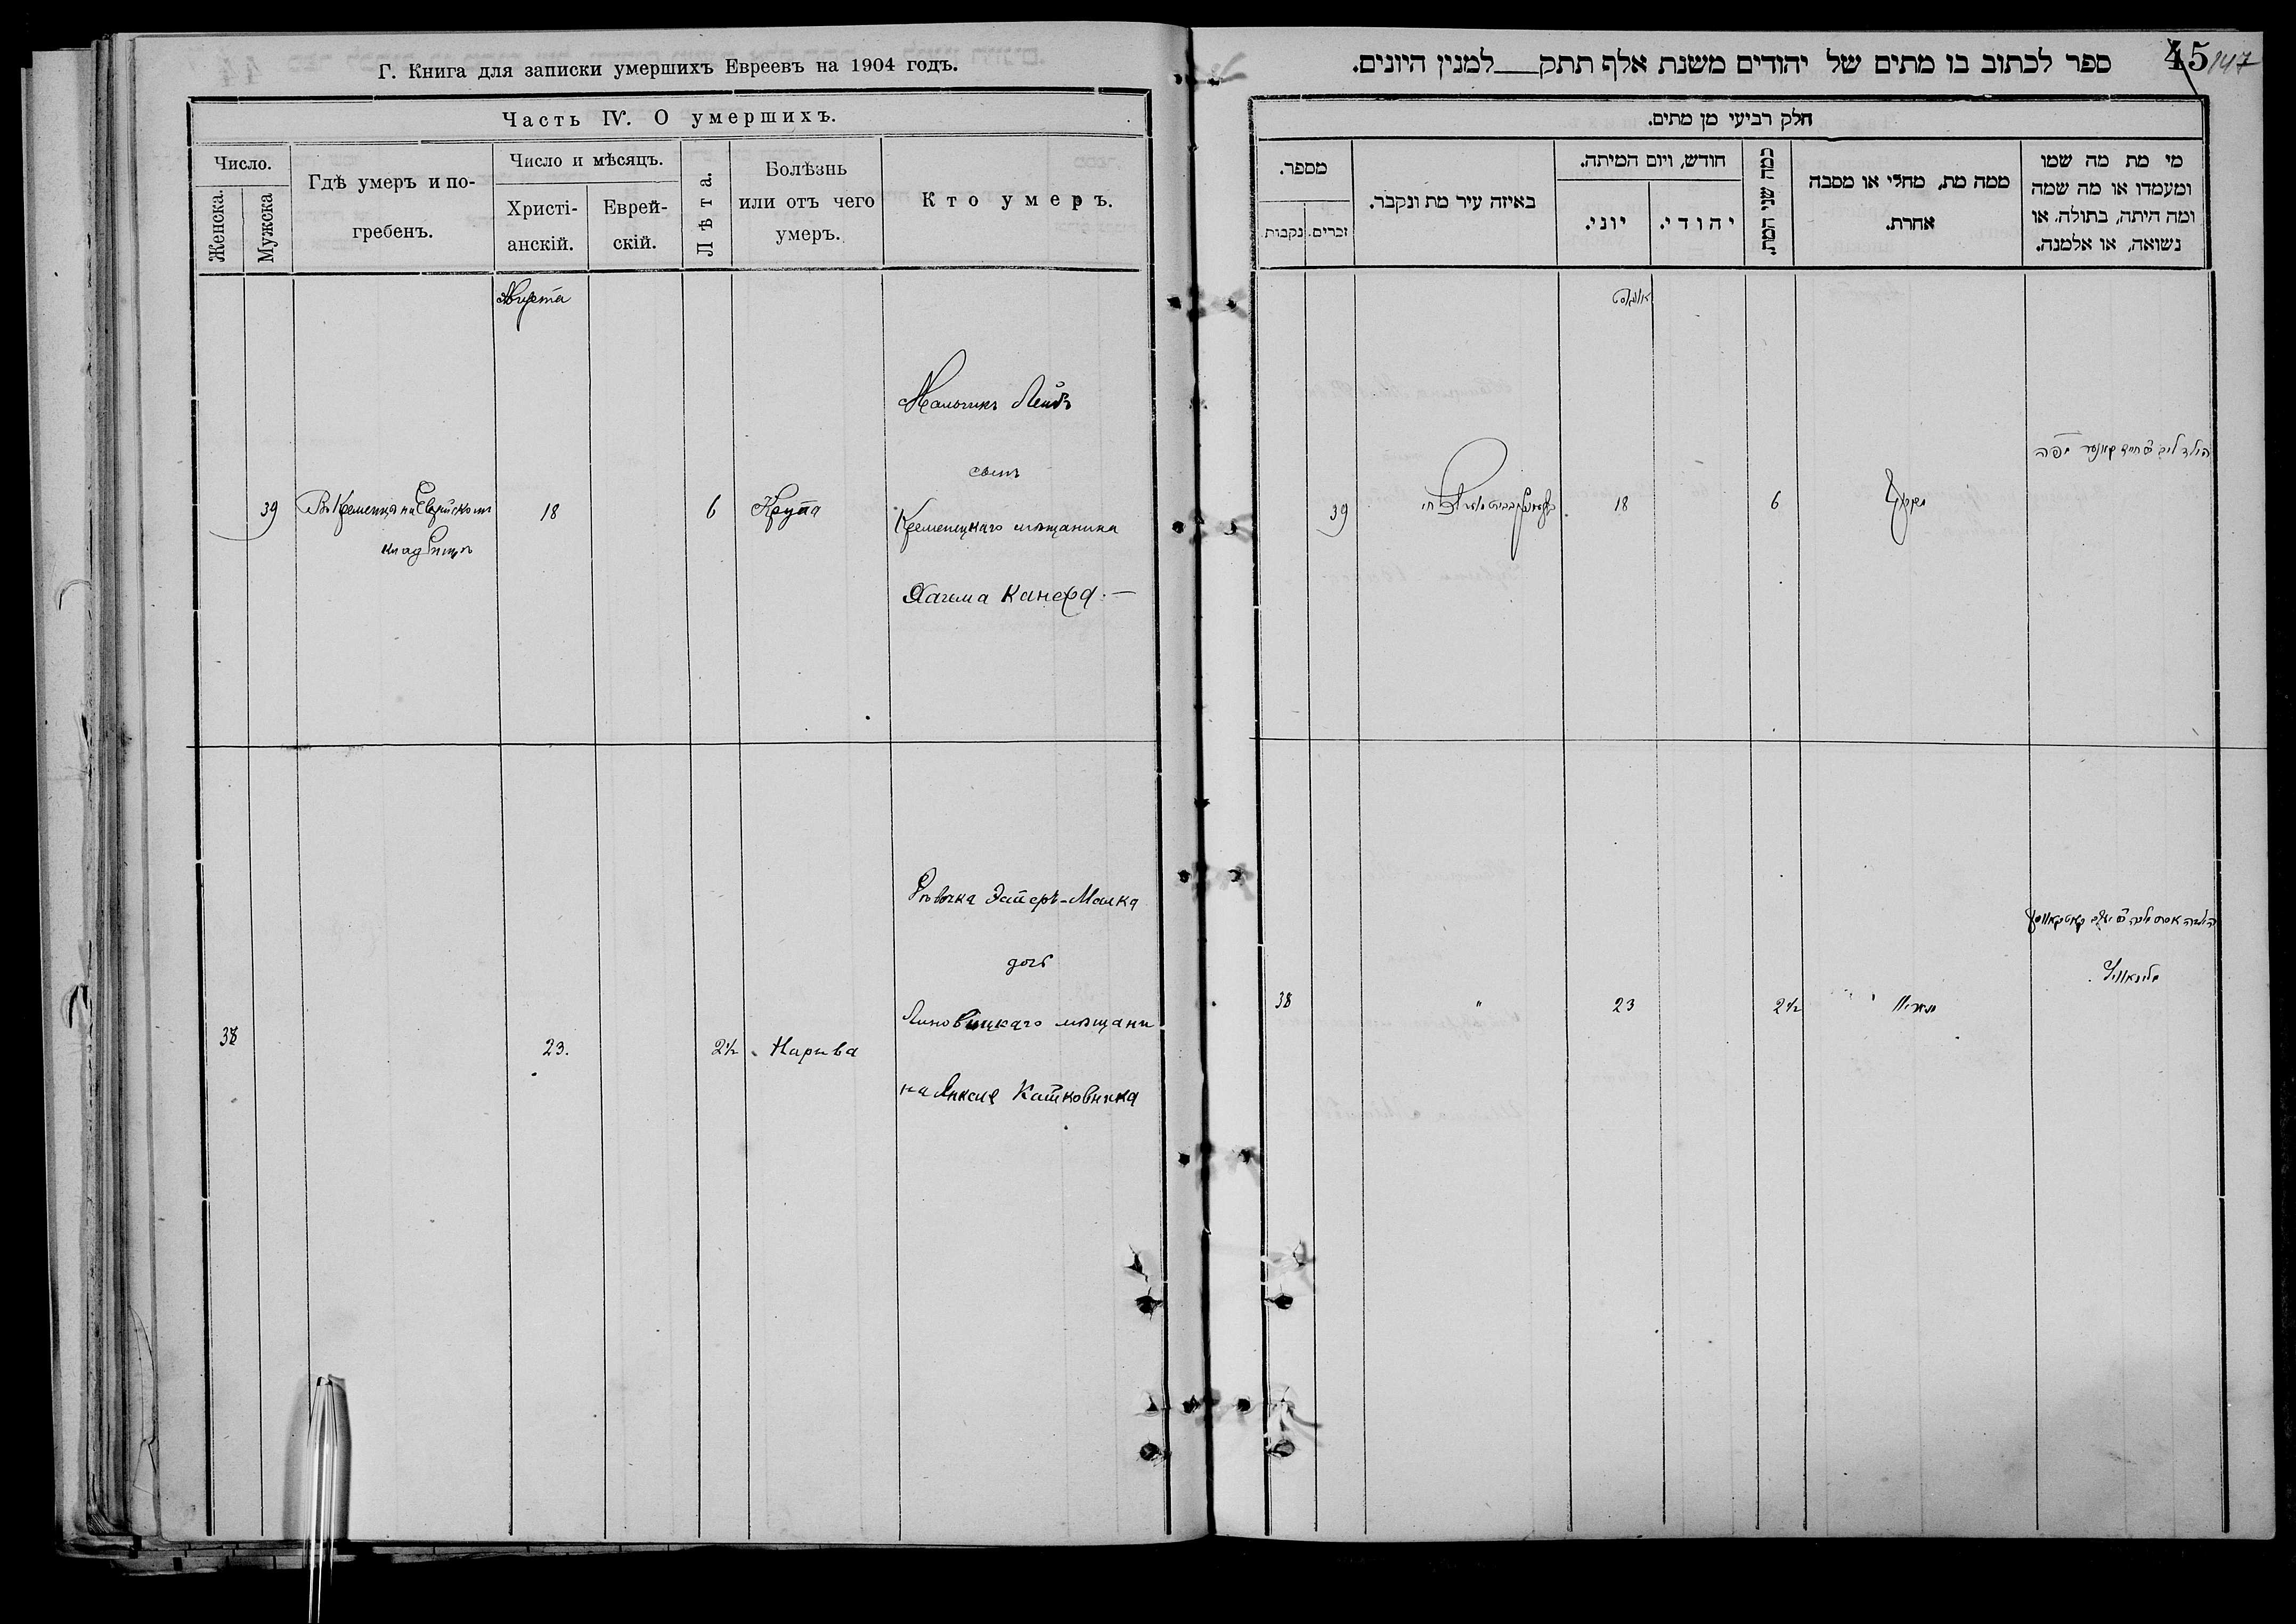 Г. Книга для записки умершихъ Евреевъ на 1904 годъ.
Часть IV. О умершихъ.
Число.
Женска.
Мужска
Гдѣ умеръ и по-
гребенъ.
Число и мѣсяцъ.
Христі-
анскій.
Еврей-
скій.
Лѣта.
Болѣзнь
или отъ чего
умеръ.
Кто умеръ.
Августа
39
Въ Кременцѣ на Еврейскомъ
кладбищѣ
18
6
Крупа
Мальчикъ Лейбъ
сынъ
Кременецкаго мѣщанина
Хаима Канера.—
38
23.
2½
Нарыва
Дѣвочка Эстеръ-Малка
дочь
мѣщани
на Янкеля Катковника
ספר לכתוב בו מתים של יהודים משנת אלף תתק___למנין היונים.
45
147
חלק רביעי מן מתים.
מספר.
נקבות.
זכרים.
באיזה עיר מת ונקבר.
חודש, ויום המיתה.
יוני.
יהודי.
כמה שני המת.
ממה מת, מחלי או מסבה
אחרת.
מי מת מה שמו
ומעמדו או מה שמה
ומה היתה, בתולה, או
נשואה, או אלמנה.
אווגוסט
39
18
6
הילד ליב
38
"
23
2½
הילדה אסתר מלכה